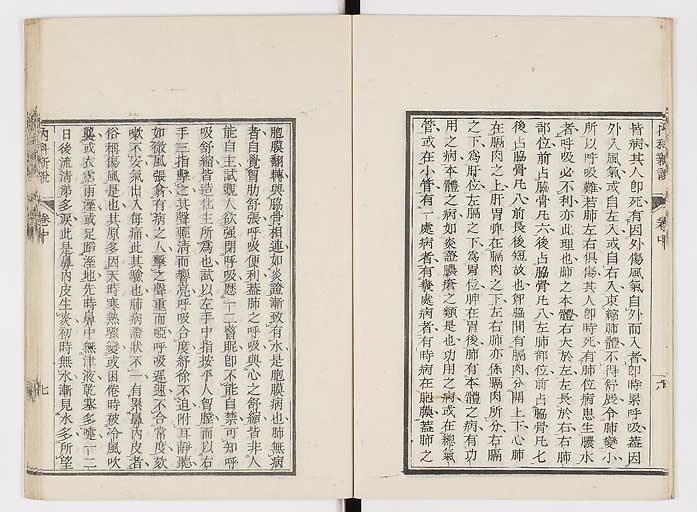 皆病其人卽死有因外傷風氣自外而入者卽時累呼吸蓋因
外入風氣或自左入或自右入束縮肺體不得舒展令肺變小
所以呼吸難若肺左右俱傷其人卽時死有肺位病患生膿水
者呼吸必不利亦此理也肺之本體右大於左左長於右右肺
部位前占脇骨凡六後占脇骨凡八左肺部位前占脇骨凡七
後占脇骨凡八前長後短故也胷脇間有膈肉分開上下心肺
在膈肉之上肝胃脾在膈肉之下左右肺亦係膈肉所分右膈
之下爲肝位左膈之下爲胃位脾在胃後肺有本體之病有功
用之病本體之病如炎證膿瘡之類是也功用之病或在總氣
管或在小管有一處病者有幾處病者有時病在胞膜蓋肺之
內科新說
卷中
六
胞膜翻轉與脇骨相連如炎證漸致有水是胞膜病也肺無病
者自覺胷肋舒張呼吸便利蓋肺之呼吸與心之舒縮皆非人
能自主試觀人欲强閉呼吸歷一二瞥眤卽不能自禁可知呼
吸舒縮皆造化主所爲也試以左手中指按平人胷膛而以右
手三指擊之其聲輕清而響亮呼吸合度舒徐不迫附耳靜聽
如微風張翕有病之人擊之聲重而啞呼吸遲速不合常度欬
嗽不安氣出入每痛此其驗也肺病證狀不一有累鼻內皮者
俗稱傷風是也其原多因天時寒熱驟變或困倦時被冷風吹
襲或衣裳雨溼或足蹈溼地先時鼻中無津液乾塞多嚏一二
日後流清涕多淚此是鼻內皮生炎初時無水漸見水多所望
內科新說
卷中
七